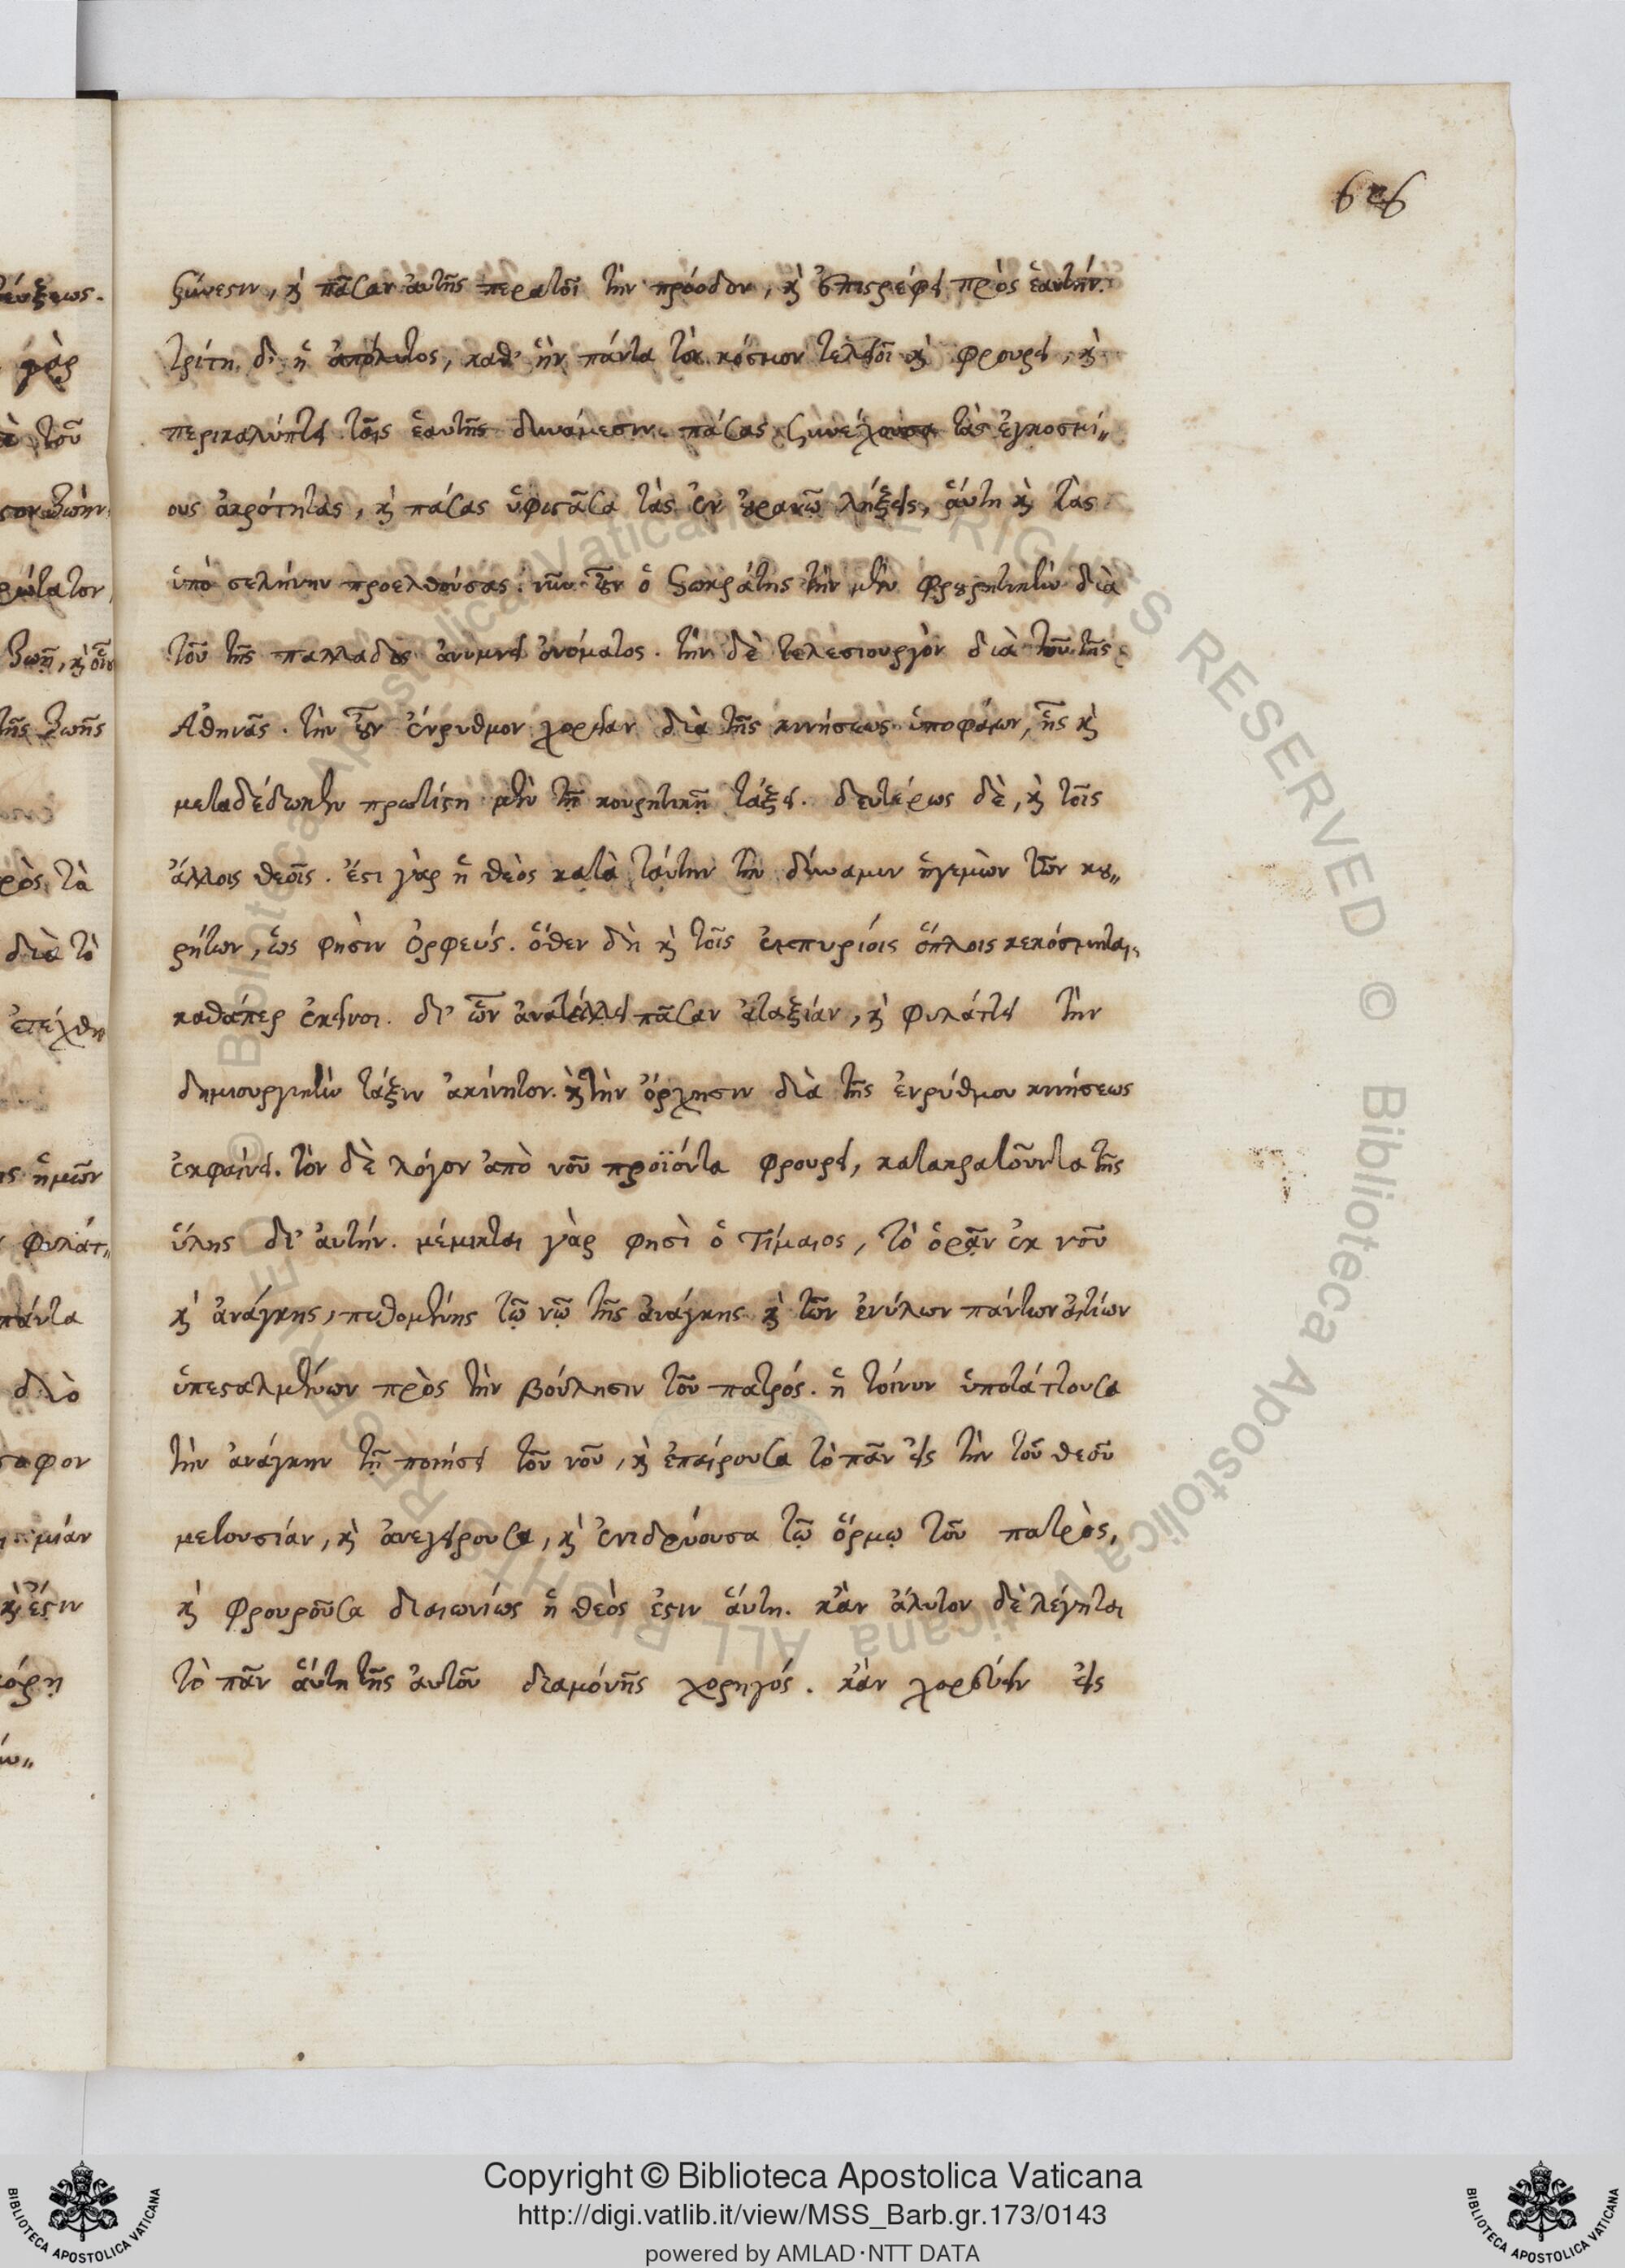 626
ξύνεσιν, καὶ πᾶσαν αὐτῆς περατοῖ τὴν πρόοδον, καὶ ἐπιστρέφει πρὸς ἑαυτήν.
τρίτη δὲ ἡ ἀπόλυτος, καθ' ἣν πάντα τὸν κόσμον τελειοῖ καὶ φρουρεῖ, καὶ
περικαλύπτει ταῖς ἑαυτῆς δυνάμεσιν. πάσας συνέχουσα τὰς ἐγκοσμί„
ους ἀκρότητας, καὶ πάσας ὑφιστᾶσα τὰς ἐν οὐρανῷ λήξεις, αὕτη καὶ τὰς
ὑπὸ σελήνην προελθούσας. νῦν οὖν ὁ Σωκράτης τὴν μὲν φρουρητικὴν διὰ
τοῦ τῆς παλλαδὸς ἀνυμνεῖ ὀνόματος. τὴν δὲ τελεσιουργὸν διὰ τοῦ τῆς
Ἀθηνᾶς. τὴν οὖν ἐνρυθμον χορείαν διὰ τῆς κινήσεως ὑποφαίνων, ἧς καὶ
μεταδέδωκεν πρωτίστη μὲν τῇ κουρητικῇ τάξει. δευτέρως δὲ, καὶ τοῖς
ἄλλοις θεοῖς. ἔστι γὰρ ἡ θεὸς κατὰ ταύτην τὴν δύναμιν ἡγεμὼν τῶν κου„
ρήτων, ὥς φησιν Ὀρφεύς. ὅθεν δὴ καὶ τοῖς ἐμπυρίοις ὅπλοις κεκόσμηται,
καθάπερ ἐκεῖνοι. δι' ὧν ἀνατέλλει πᾶσαν ἀταξίαν, καὶ φυλάττει τὴν
δημιουργικὴν τάξιν ἀκίνητον. καὶ τὴν ὄρχησιν διὰ τῆς ἐνρύθμου κινήσεως
ἐκφαίνει. τὸν δὲ λόγον ἀπὸ νοῦ προϊόντα φρουρεῖ, κατακρατοῦντα τῆς
ὕλης δι' αὐτήν. μέμικται γὰρ φησὶ ὁ Τίμαιος, τὸ ὁρᾷν ἐκ νοῦ
καὶ ἀνάγκης, πειθομένης τῷ νῷ τῆς ἀνάγκης καὶ τῶν ἐνύλων πάντων αἰτίων
ὑπεσταλμένων πρὸς τὴν βούλησιν τοῦ πατρός. ἡ τοίνυν ὑποτάττουσα
τὴν ἀνάγκην τῇ ποιήσει τοῦ νοῦ, καὶ ἐπαίρουσα τὸ πᾶν εἰς τὴν τοῦ θεοῦ
μετουσίαν, καὶ ἀνεγείρουσα, καὶ ἐνιδρύουσα τῷ ὅρμῳ τοῦ πατρὸς,
καὶ φρουροῦσα διαιωνίως ἡ θεὸς ἐστιν αὕτη. κἂν ἄλυτον δὲ λέγηται
τὸ πᾶν αὕτη τῆς αὐτοῦ διαμόνῆς χορηγός. κἂν χορεύειν εἰς